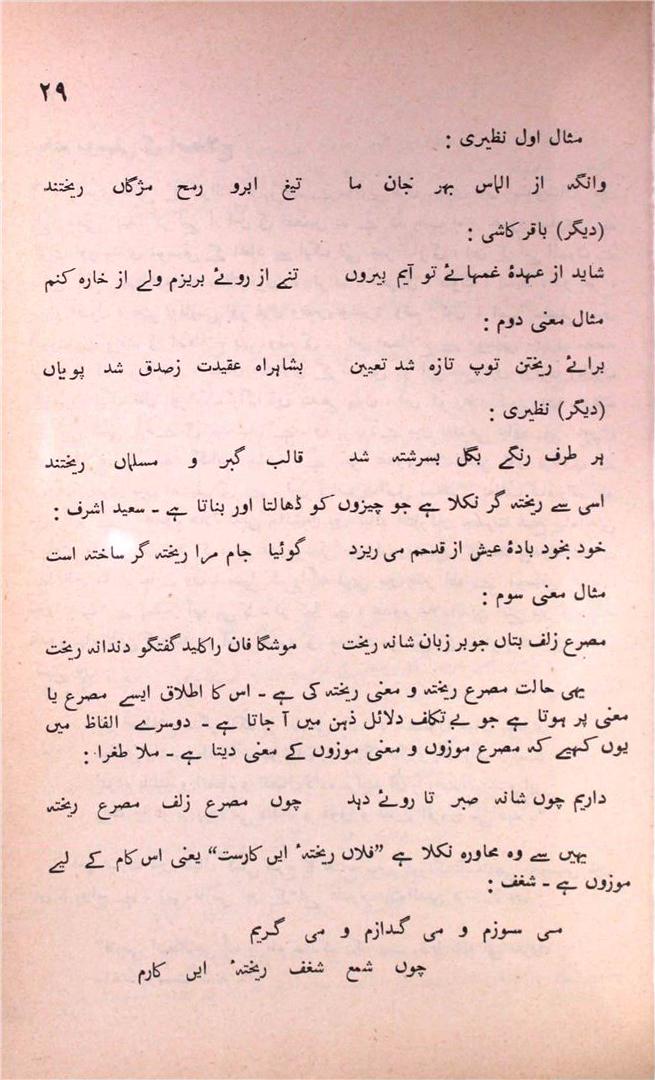 ۲۹
مثال اول نظیری :
وانگہ از الماس بہر جان ما تیغ ابرو رمح مژگاں ریختند
(دیگر) باقر کاشی :
شاید از عہدۂ غمہائے تو آیم بیروں تنے از روئے بریزم ولے از خارہ کنم
مثال معنی دوم :
برائے ریختن توپ تازہ شد تعیین بشاہراہ عقیدت زصدق شد پویاں
(دیگر) نظیری :
ہر طرف رنگے بگل بسرشتہ شد قالب گبر و مسلماں ریختند
اسی سے ریختہ گر نکلا ہے جو چیزوں کو ڈھالتا اور بناتا ہے ۔ سعید اشرف :
خود بخود بادۂ عیش از قدحم می ریزد گوئیا جام مرا ریختہ گر ساختہ است
مثال معنی سوم :
مصرع زلف بتاں جوبر زبان شانہ ریخت موشگافان راکلید گفتگو دندانہ ریخت
یہی حالت مصرع ریختہ و معنی ریختہ کی ہے ۔ اس کا اطلاق ایسے مصرع یا
معنی پر ہوتا ہے جو بے تکلف دلائل ذہن میں آ جاتا ہے ۔ دوسرے الفاظ میں
یوں کہیے کہ مصرع موزوں و معنی موزوں کے معنی دیتا ہے ۔ ملا طغرا :
داریم چوں شانہ صبر تا روئے دہد چوں مصرع زلف مصرع ریختہ
یہیں سے وہ محاورہ نکلا ہے ”فلاں ریختہٴ ایں کارست“ یعنی اس کام کے لیے
موزوں ہے ۔ شغف :
می سوزم و می گدازم و می گریم
چوں شمع شغف ریختہٴ ایں کارم